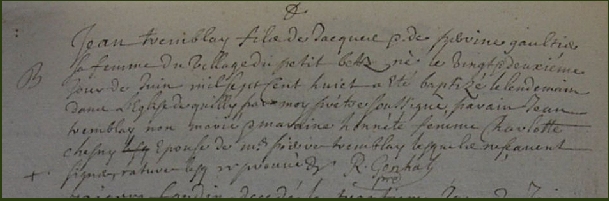 B
Jean tremblay filz de Jacques & de perrine gaultier
sa femme du village du petit betz né le vingt deuxiéme
jour de Juin mil sept cent huict a eté baptizé le lendemain
dans L'Eglise de quilly par moy pretre soussigné parain Jean
tremblay non marié & maraine honnéte femme Charlotte
chesny Epouse de me pierre tremblay lesquels
signer rature R. Gonhal
ptre
+